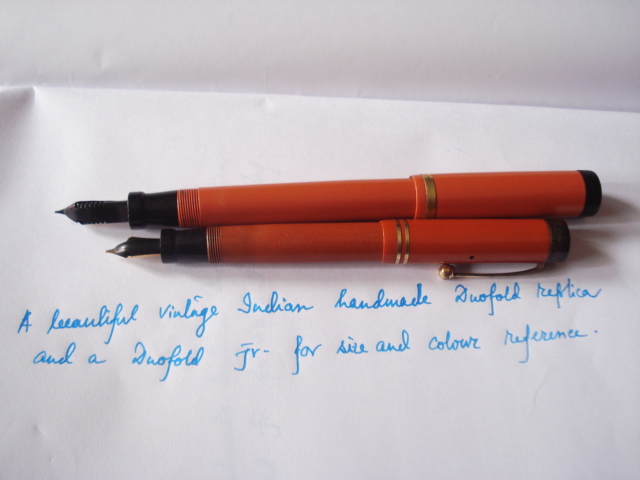 A beautiful vintage Indian handmade Duofold replica
and a Duofold Jr. for size and colour reference.